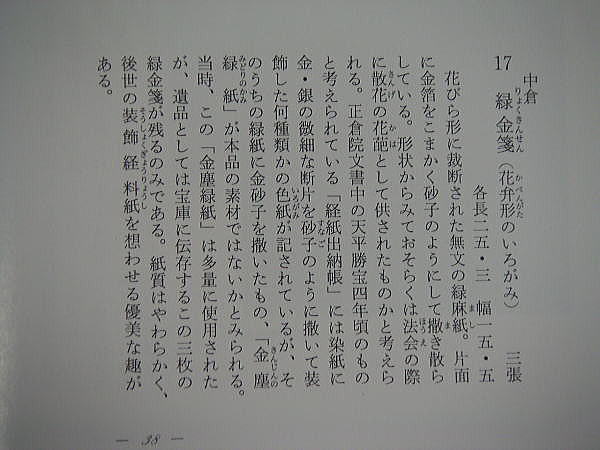 中倉
17 緑金箋（花弁形のいろがみ） 三張
りょくきんせん かべんがた
各長二五・三 幅一五・五
花びら形に裁断された無文の緑麻紙。片面
まし
に金箔をこまかく砂子のようにして撒き散ら
ま
している。形状からみておそらくは法会の際
ほうえ
に散花の花葩として供されたものかと考えら
さんげ かは
れる。正倉院文書中の天平勝宝四年頃のもの
と考えられている「経紙出納帳」には染紙に
金・銀の微細な断片を砂子のように撒いて装
すなご
飾した何種類かの色紙が記されているが、そ
いろがみ
のうちの緑紙に金砂子を撒いたもの、「金塵
きんじんの
緑紙」が本品の素材ではないかとみられる。
みどりのかみ
当時、この「金塵緑紙」は多量に使用された
が、遺品としては宝庫に伝存するこの三枚の
緑金箋が残るのみである。紙質はやわらかく、
後世の装飾経料紙を想わせる優美な趣が
そうしょくぎょうりょうし
ある。
— 38 —